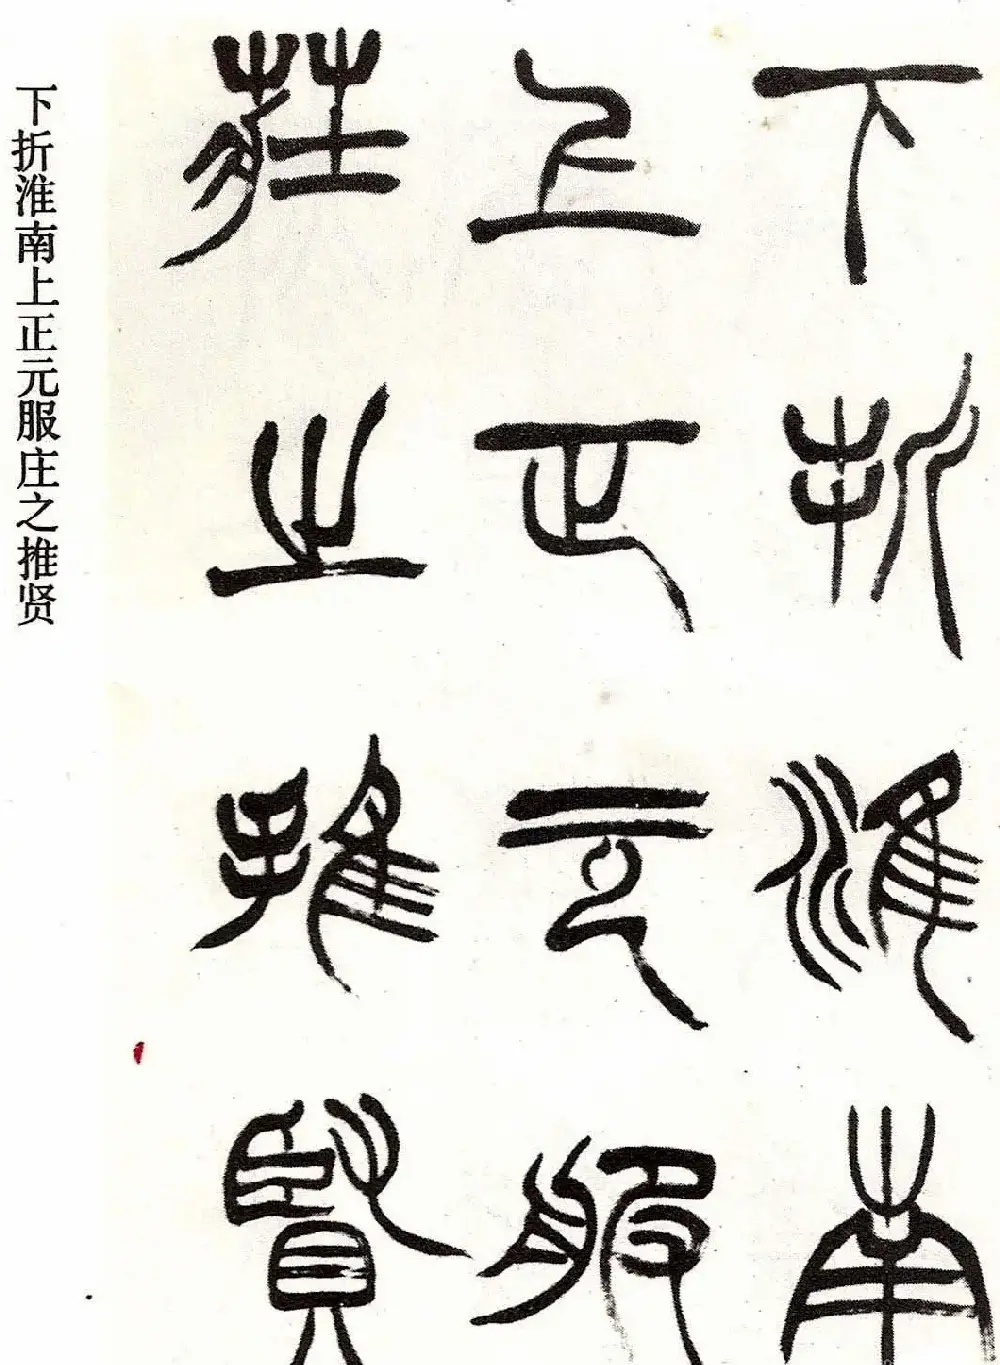 下折淮南
上正元服
莊之推賢
下折淮南上正元服庄之推贤